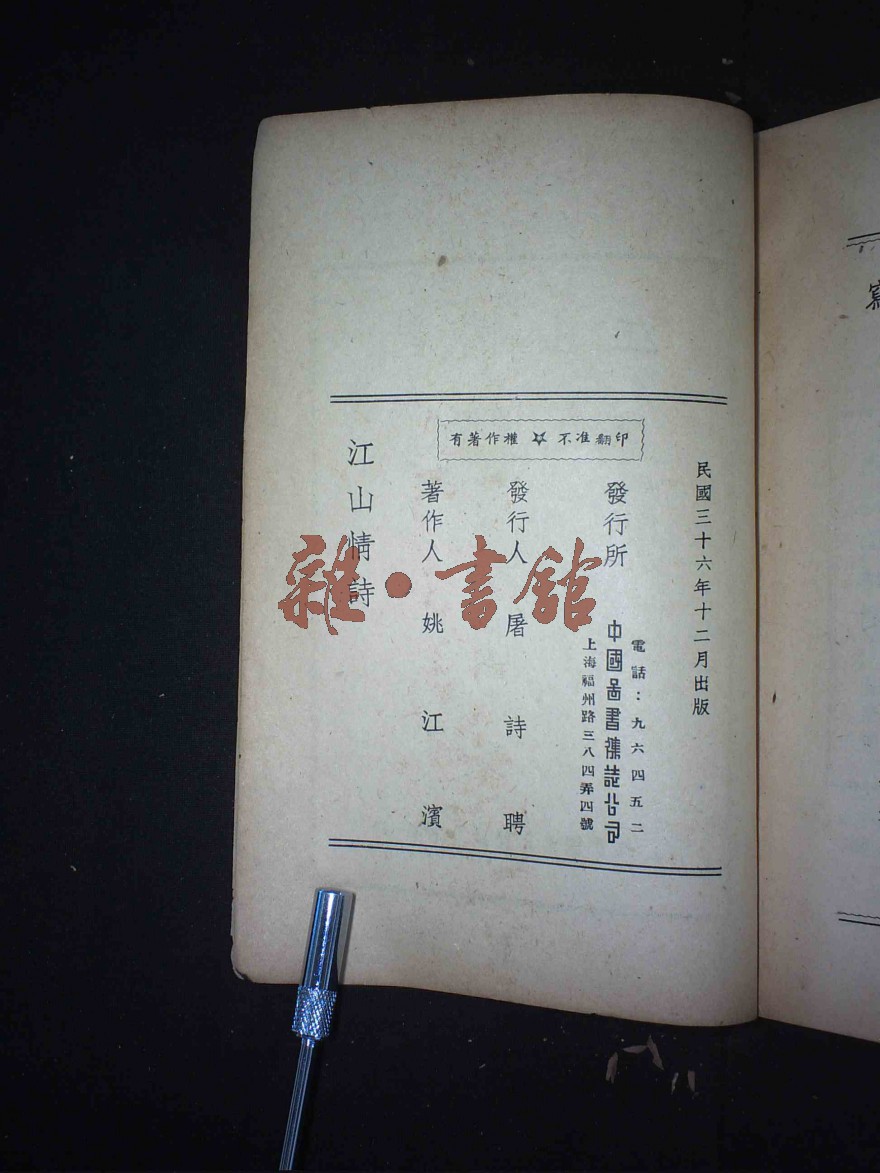 有著作權 ☆ 不准翻印
民國三十六年十二月出版
發行所
電話：九六四五二
中國圖書雜誌公司
上海福州路三八四弄四號
發行人 屠詩聘
著作人 姚江濱
江山情詩
雜·書館
寫